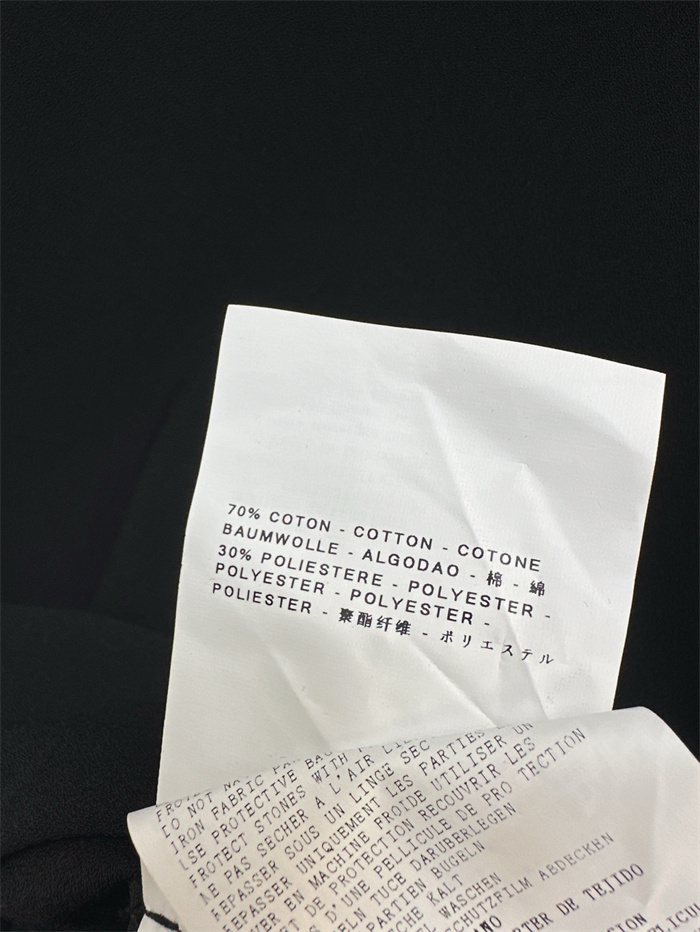 70% COTON - COTTON - COTONE
BAUMWOLLE - ALGODAO - 棉 - 綿
30% POLIESTERE - POLYESTER -
POLYESTER - POLYESTER -
POLIESTER - 聚酯纤维 - ポリエステル
DO NOT
IRON FABRIC
USE PROTECTIVE
PROTECT STONES WITH
NE PAS SECHER A L'AIR
REPASSER SOUS UN LINGE SEC
REPASSER UNIQUEMENT LES PARTIES
EN MACHINE FROIDE UTILISER UN
DE PROTECTION RECOUVRIR LES
D'UNE PELLICULE DE PRO TECTION
TUCE DARUBERLEGEN
PARTIEN BUGELN
KALT
WASCHEN
ABDECKEN
DE TEJIDO